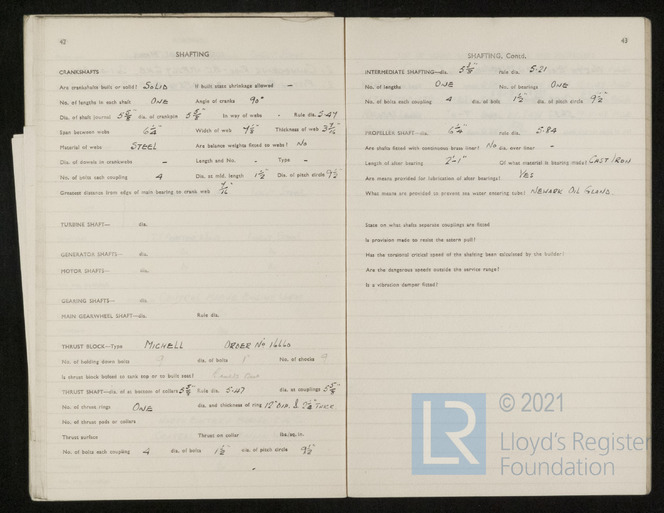 42
SHAFTING
CRANKSHAFTS
Are crankshafts built or solid? SOLID If built state shrinkage allowed -
No. of lengths in each shaft ONE Angle of cranks 90°
Dia. of shaft journal 5 5/8" dia. of crankpin 5 5/8" in way of webs - Rule dia. 5.47
Span between webs Width of web Thickness of web
Material of webs STEEL Are balance weights fitted to webs? No
Dia. of dowels in crankwebs - Length and No. - Type -
No. of bolts each coupling 4 Dia. at mid. length 1 1/2" Dia. of pitch circle 9 1/2"
Greatest distance from edge of main bearing to crank web
TURBINE SHAFT— dia.
GENERATOR SHAFT— dia.
MOTOR SHAFTS— dia.
GEARING SHAFTS— dia
MAIN GEARWHEEL SHAFT—dia. Rule dia.
THRUST BLOCK—Type MICHELL ORDER No 16660
No. of holding down bolts 9 dia. of bolts 1" No. of chocks 9
Is thrust block bolted to tank top or to built seat?
THRUST SHAFT—dia. of at bottom of collars 5 5/8" Rule dia. 5.47 dia. at couplings 5 5/8"
No. of thrust rings ONE dia. and thickness of ring 12" DIA. & THICK
No. of thrust pads or collars
Thrust surface Thrust on collar lbs/sq. in.
No. of bolts each coupling 4 dia. of bolts 1 1/2" dia. of pitch circle 9 1/2"
43
SHAFTING, Contd.
INTERMEDIATE SHAFTING—dia. rule dia. 5.21
No. of lengths ONE No. of bearings ONE
No. of bolts each coupling 4 dia. of bolt 1 1/2" dia. of pitch circle 9 1/2"
PROPELLER SHAFT—dia. 6 1/4" rule dia. 5.84
Are shafts fitted with continuous brass liner? No dia. over liner -
Length of stern bearing 2'-1" Of what material is bearing made? CAST IRON
Are means provided for lubrication of stern bearings? YES
What means are provided to prevent sea water entering tube? NEWARK OIL GLAND.
State on what shafts separate couplings are fitted
Is provision made to resist the astern pull?
Has the torsional critical speed of the shafting been calculated by the builder?
Are the dangerous speeds outside the service range?
Is a vibration damper fitted?
LR
© 2021
Lloyd's Register
Foundation